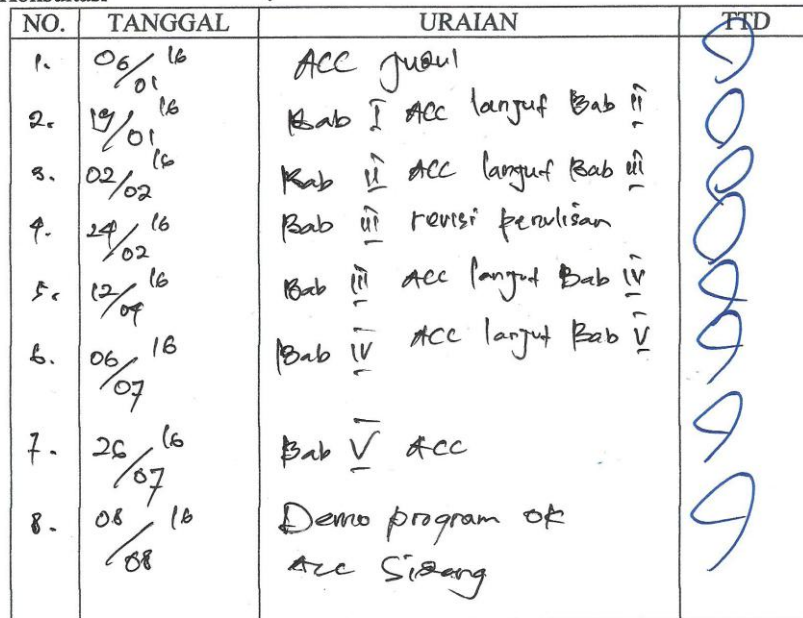 NO. TANGGAL URAIAN TTD
1. 06/01 16 ACC Judul
2. 19/01 16 Bab I ACC lanjut Bab II
3. 02/02 16 Bab II ACC lanjut Bab III
4. 24/02 16 Bab III revisi penulisan
5. 12/04 16 Bab III ACC lanjut Bab IV
6. 06/07 16 Bab IV ACC lanjut Bab V
7. 26/07 16 Bab V ACC
8. 08/08 16 Demo program ok
Acc Sidang